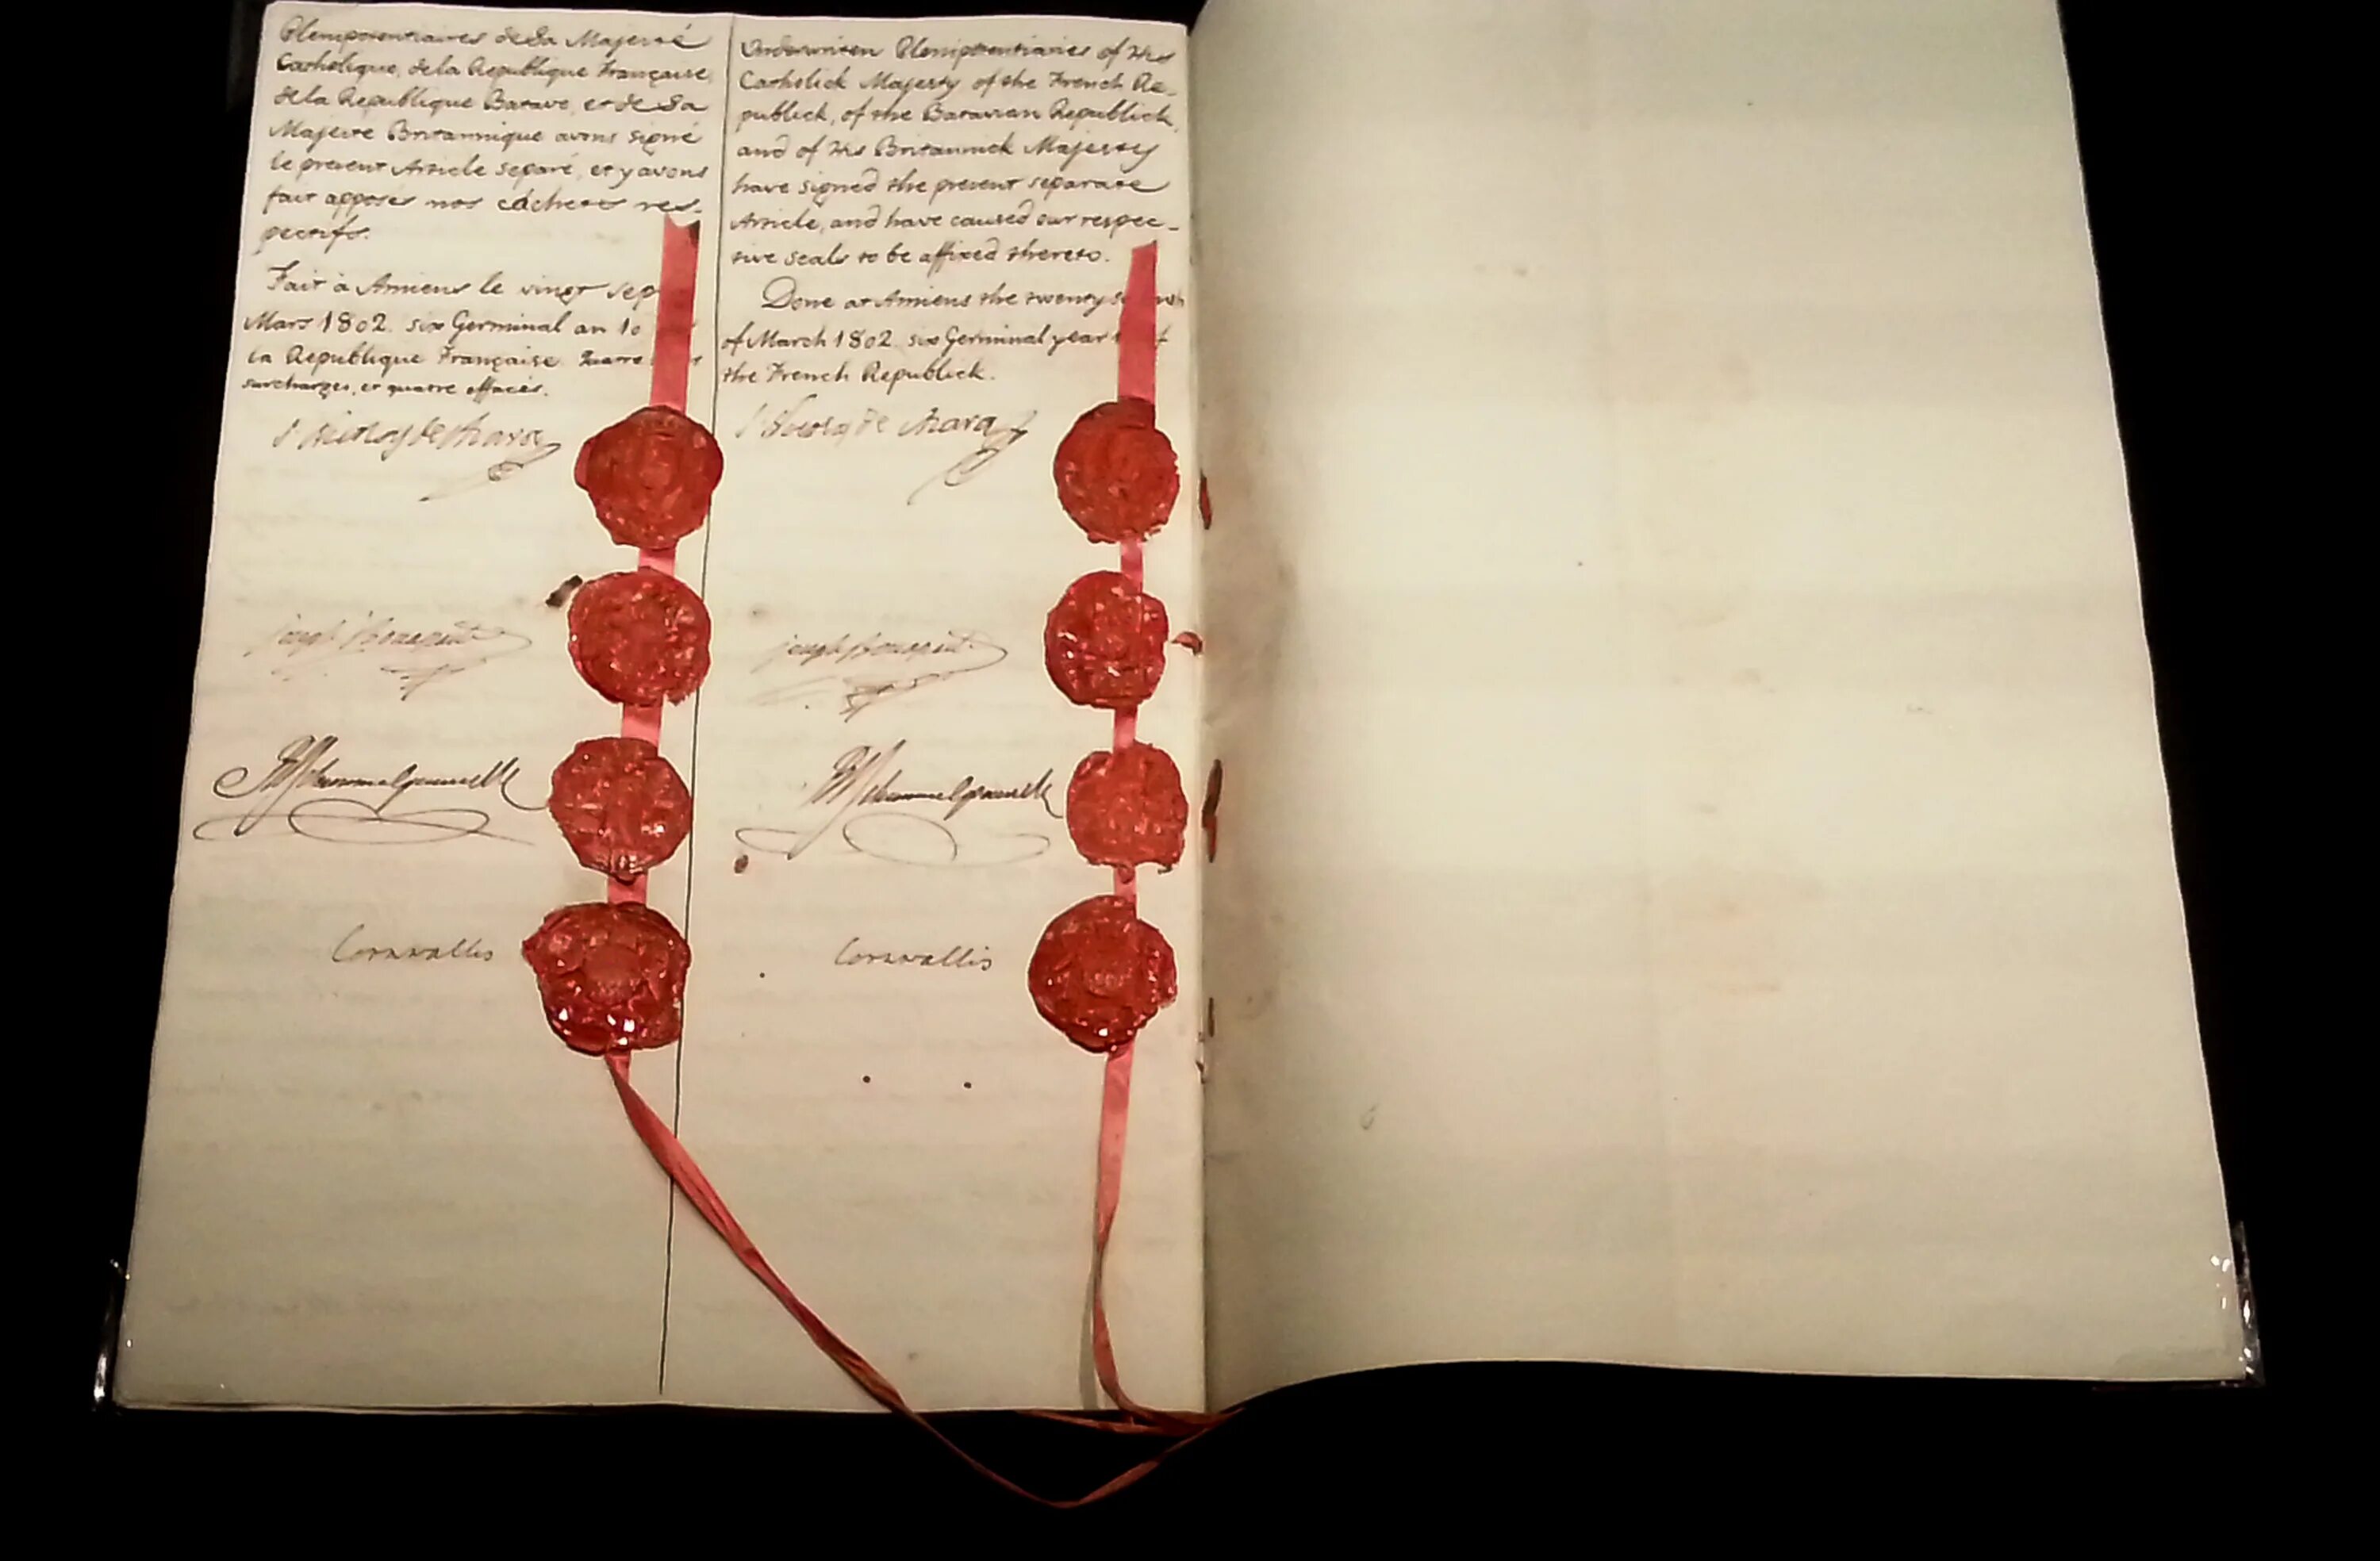 Plenipotentiaires de Sa Majesté
Catholique, de la Republique Française,
de la Republique Batave, et de Sa
Majesté Britannique avons signé
le present Article separé, et y avons
fait apposer nos cachets res-
pectifs.
Fait à Amiens le vingt sep
Mars 1802. six Germinal an 10
la Republique Française. Quatre
surcharges, et quatre effacés.
Joseph Bonaparte
Cornwallis
Underwriten Plenipotentiaries of His
Catholick Majesty of the French Re-
publick, of the Batavian Republick,
and of His Britannick Majesty
have signed the present separate
Article, and have caused our respec-
tive seals to be affixed thereto.
Done at Amiens the twenty
of March 1802. six Germinal year
the French Republick.
de Azara
Joseph Bonaparte
Cornwallis